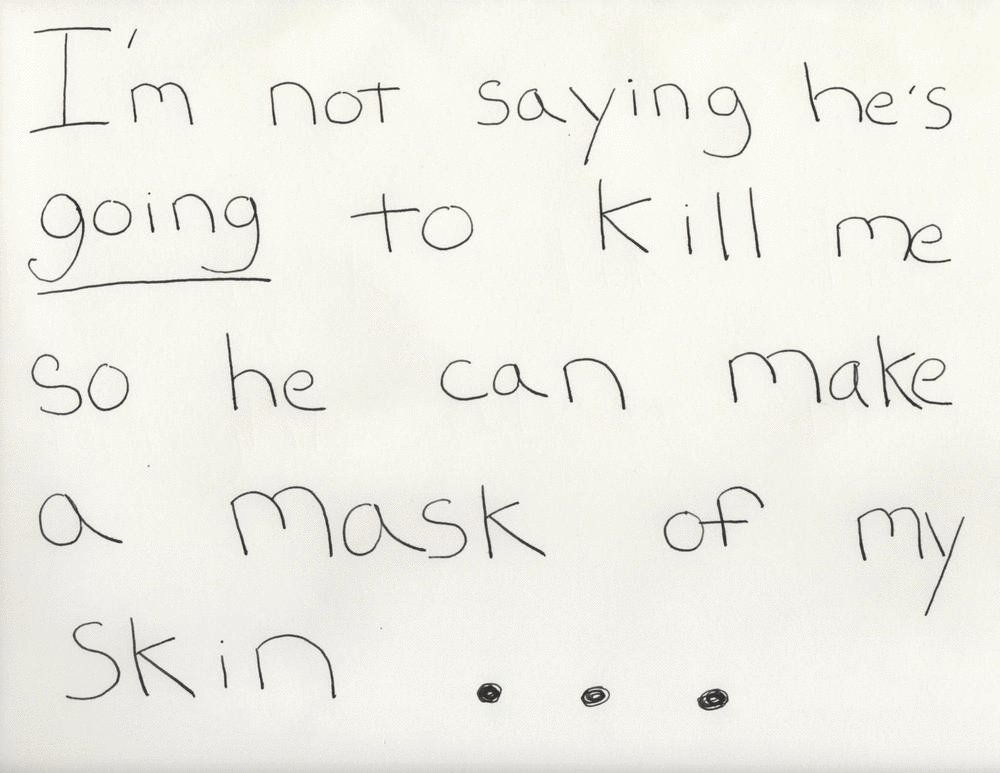 I'm not saying he's
going to kill me
so he can make
a mask of my
skin ...